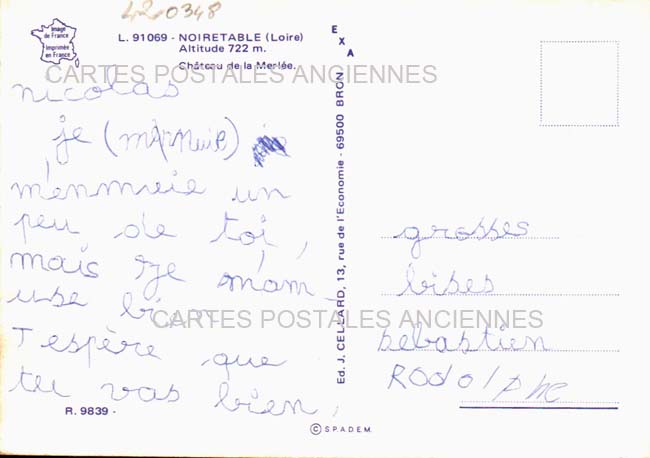 420348
Image
de France
Imprimée
en France
L. 91069 - NOIRETABLE (Loire)
Altitude 722 m.
Château de la Merlée.
CARTES POSTALES ANCIENNES
nicolas
je
m'ennuie un
peu de toi,
mais je m'am-
use bien
J'espère que
tu vas bien,
R. 9839 -
EXA
Ed. J. CELLARD, 13, rue de l'Economie - 69500 BRON
grosses
bises
sebastien
Rodolphe
CARTES POSTALES ANCIENNES
© S.P.A.D.E.M.